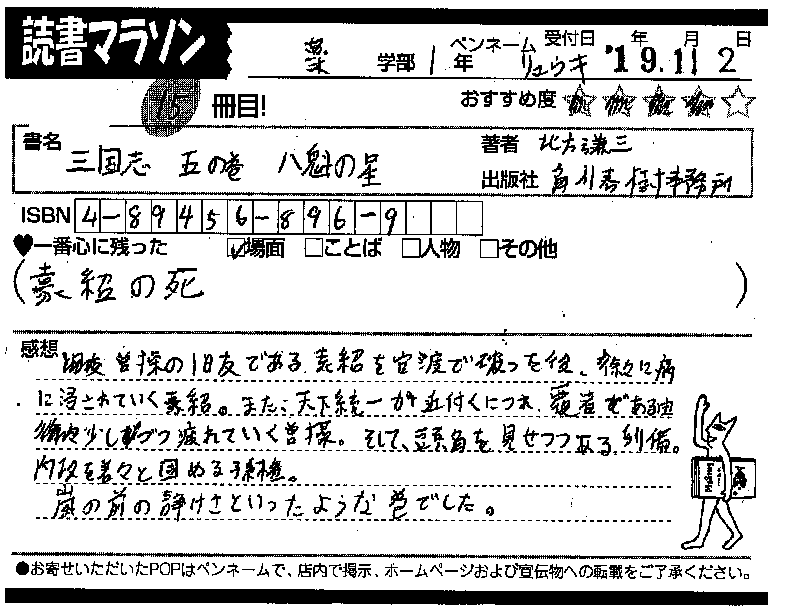 読書マラソン
薬 学部 1 年 ペンネーム リュウキ 受付日 '19年 11月 2日
15 冊目! おすすめ度 ★★★★☆
書名 三国志 五の巻 八魁の星
著者 北方謙三
出版社 角川春樹事務所
ISBN 4-89456-896-9
♥一番心に残った ☑場面 □ことば □人物 □その他
(袁紹の死)
感想 曹操の旧友である袁紹を官渡で破った後、徐々に病
に浸されていく袁紹。また、天下統一が近付くにつれ、覇者である
少しずつ疲れていく曹操。そして、頭角を見せつつある劉備。
内政を着々と固める孫権。
嵐の前の静けさといったような巻でした。
●お寄せいただいたPOPはペンネームで、店内で掲示、ホームページおよび宣伝物への転載をご了承ください。